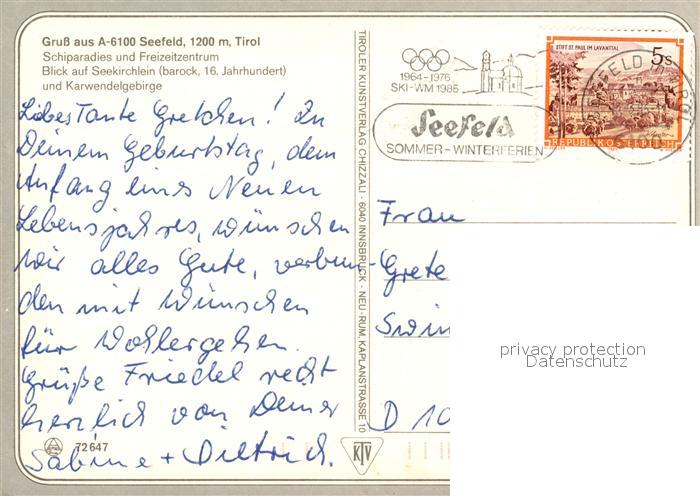 Gruß aus A-6100 Seefeld, 1200 m, Tirol
Schiparadies und Freizeitzentrum
Blick auf Seekirchlein (barock, 16. Jahrhundert)
und Karwendelgebirge
Liebes Tante Gretchen! Zu
Deinem Geburtstag, dem
Anfang eines Neuen
Lebensjahres, wünschen
wir alles Gute, verbun-
den mit Wünschen
für Wohlergehen.
Grüße Friedel recht
herzlich von Deiner
Sabine + Dietrich.
72647
TIROLER KUNSTVERLAG CHIZZALI · 6040 INNSBRUCK - NEU-RUM, KAPLANSTRASSE 10
KTV
1964-1976
SKI-WM 1985
Seefeld
SOMMER-WINTERFERIEN
STIFT ST. PAUL IM LAVANTTAL
5 S
REPUBLIK ÖSTERREICH
SEEFELD
Frau
Grete
Swin
D 10
privacy protection
Datenschutz